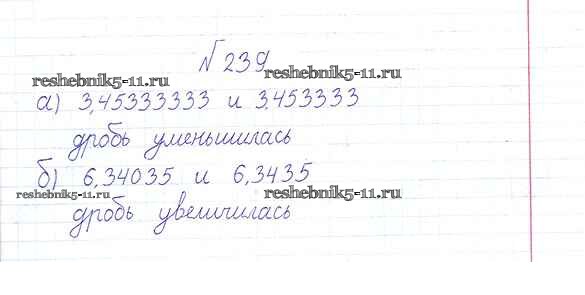 № 239
reshebnik5-11.ru
reshebnik5-11.ru
а) 3,45333333 и 3,453333
дробь уменьшилась
б) 6,34035 и 6,3435
reshebnik5-11.ru
reshebnik5-11.ru
дробь увеличилась